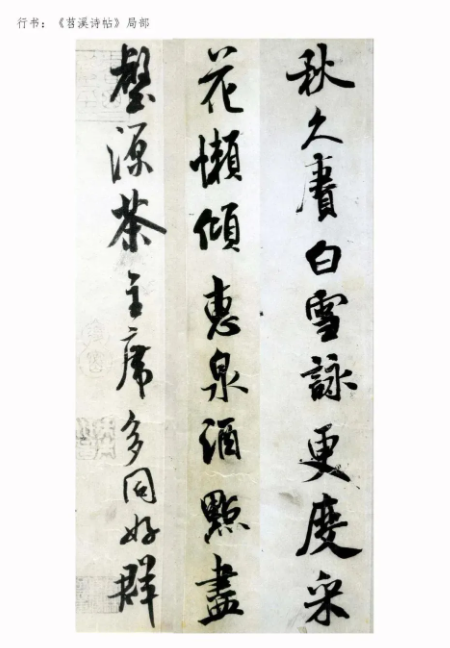 行书：《苕溪诗帖》局部
秋久賡白雪詠更度采
花懶傾惠泉酒點盡
壑源茶主席多同好群